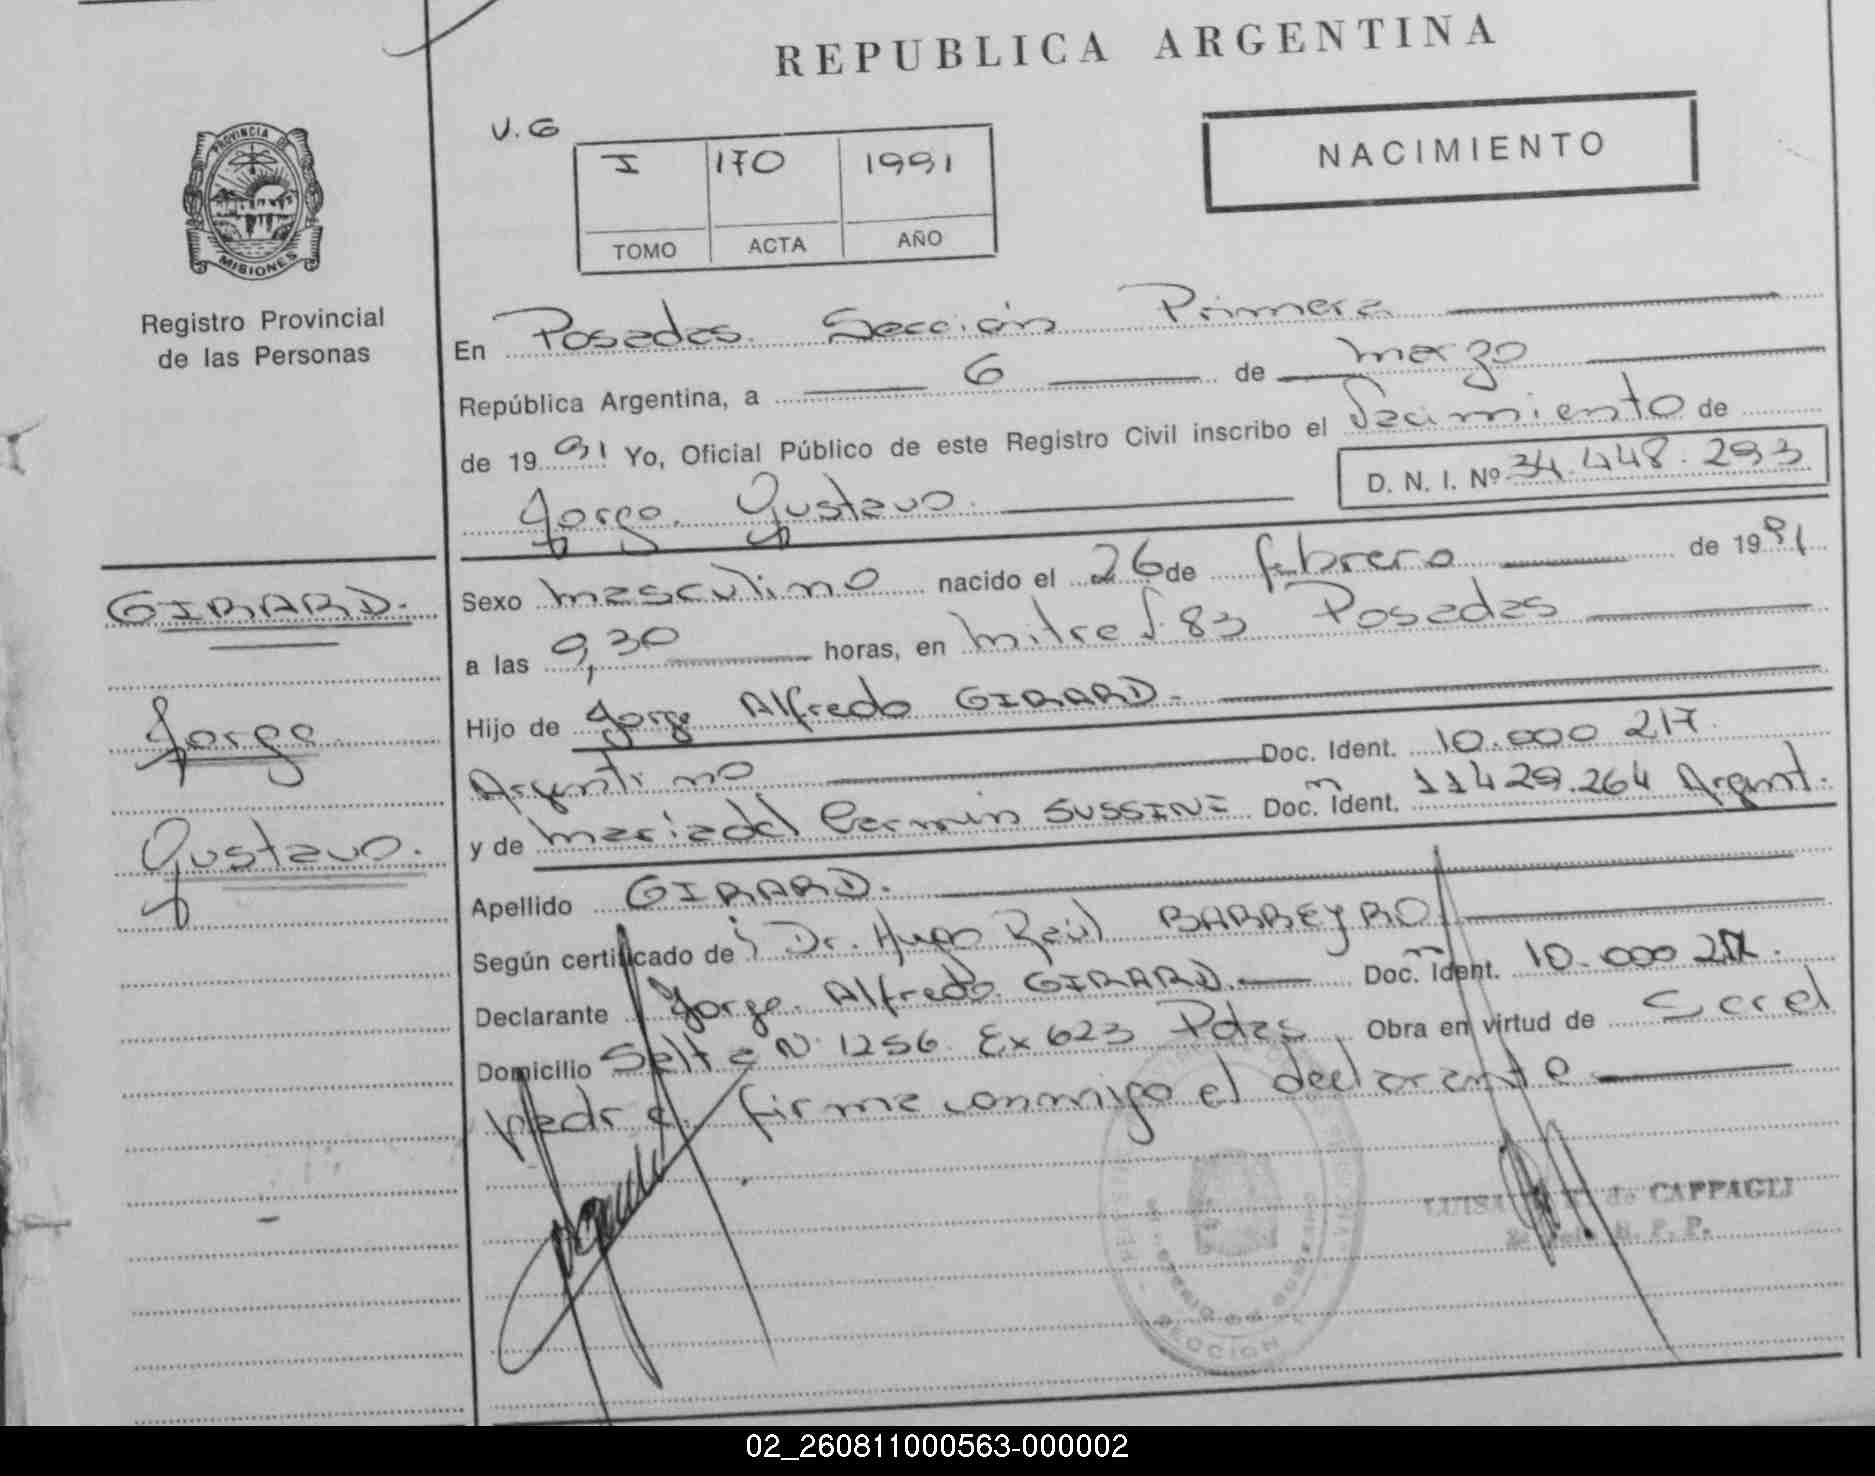 REPUBLICA ARGENTINA
V.G
I 170 1991
TOMO ACTA AÑO
NACIMIENTO
PROVINCIA DE
MISIONES
Registro Provincial
de las Personas
En Posadas Sección Primera
República Argentina, a 6 de marzo
de 1991 Yo, Oficial Público de este Registro Civil inscribo el Nacimiento de
Jorge Gustavo.
D. N. I. Nº 34.448.293
Sexo masculino nacido el 26 de febrero de 1991
a las 9,30 horas, en mitre 83 Posadas
Hijo de Jorge Alfredo GIRARD.
Argentino Doc. Ident. 10.000 217
y de María del Carmen SUSSINI Doc. Ident. 11429.264 Argent.
Apellido GIRARD.
Según certificado de Dr. Hugo Raúl BARREYRO
Declarante Jorge Alfredo GIRARD. Doc. Ident. 10.000 217.
Domicilio Salta N 1256 Ex 623 Pdas Obra en virtud de Ser el
padre. firma conmigo el declarante
GIRARD.
Jorge
Gustavo.
LUISA de CAPPAGLI
SECCION
02_260811000563-000002